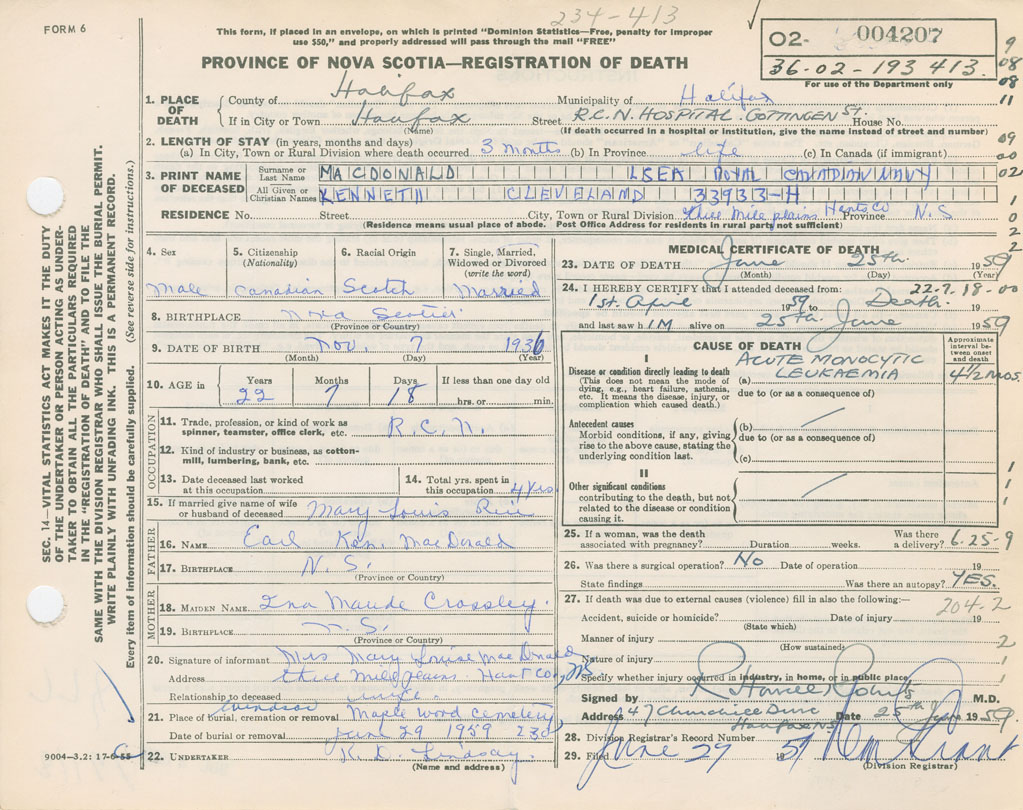 234-413
FORM 6
This form, if placed in an envelope, on which is printed "Dominion Statistics—Free, penalty for improper
use $50," and properly addressed will pass through the mail "FREE"
PROVINCE OF NOVA SCOTIA—REGISTRATION OF DEATH
02- 004207
36-02-193413.
For use of the Department only
9
08
08
11
09
00
02
1
0
2
2
SEC. 14—VITAL STATISTICS ACT MAKES IT THE DUTY
OF THE UNDERTAKER OR PERSON ACTING AS UNDER-
TAKER TO OBTAIN ALL THE PARTICULARS REQUIRED
IN THE "REGISTRATION OF DEATH" AND TO FILE THE
SAME WITH THE DIVISION REGISTRAR WHO SHALL ISSUE THE BURIAL PERMIT.
WRITE PLAINLY WITH UNFADING INK. THIS IS A PERMANENT RECORD.
Every item of information should be carefully supplied. (See reverse side for instructions.)
1. PLACE OF DEATH
County of Halifax Municipality of Halifax
If in City or Town Halifax Street R.C.N. HOSPITAL. GOTTINGEN St. House No.
(Name) (If death occurred in a hospital or institution, give the name instead of street and number)
2. LENGTH OF STAY (in years, months and days)
(a) In City, Town or Rural Division where death occurred 3 months (b) In Province life (c) In Canada (if immigrant)
3. PRINT NAME OF DECEASED
Surname or Last Name MACDONALD LSEA ROYAL CANADIAN NAVY
All Given or Christian Names KENNETH CLEVELAND 33933-H
RESIDENCE No. Street City, Town or Rural Division three mile plains Hants Co Province N.S
(Residence means usual place of abode. Post Office Address for residents in rural parts not sufficient)
4. Sex 5. Citizenship (Nationality) 6. Racial Origin 7. Single, Married, Widowed or Divorced (write the word)
Male Canadian Scotch Married
8. BIRTHPLACE Nova Scotia
(Province or Country)
9. DATE OF BIRTH Nov. 7 1936
(Month) (Day) (Year)
10. AGE in Years Months Days If less than one day old
22 7 18 hrs. or min.
OCCUPATION
11. Trade, profession, or kind of work as
spinner, teamster, office clerk, etc. R.C.N.
12. Kind of industry or business, as cotton-
mill, lumbering, bank, etc.
13. Date deceased last worked
at this occupation
14. Total yrs. spent in
this occupation 4 yrs
15. If married give name of wife
or husband of deceased Mary Louis
FATHER
16. NAME Earl Ken. MacDonald
17. BIRTHPLACE N.S.
(Province or Country)
MOTHER
18. MAIDEN NAME Ina Maude Crossley.
19. BIRTHPLACE N.S.
(Province or Country)
20. Signature of informant Mrs Mary Louise MacDonald
Address three Mile plains Hant Co, NS
Relationship to deceased wife.
Windsor
21. Place of burial, cremation or removal Maple wood Cemetery
Date of burial or removal June 29 1959 230
22. UNDERTAKER K. D. Lindsay.
(Name and address)
9004—3.2: 17-6-55
MEDICAL CERTIFICATE OF DEATH
23. DATE OF DEATH June 25th. 1959
(Month) (Day) (Year)
22-7-18-00
24. I HEREBY CERTIFY that I attended deceased from:
1st. April 1959 to Death. 19
and last saw hIM alive on 25th. June 1959
CAUSE OF DEATH
Approximate interval between onset and death
I
Disease or condition directly leading to death
(This does not mean the mode of
dying, e.g., heart failure, asthenia,
etc. It means the disease, injury, or
complication which caused death.)
(a) ACUTE MONOCYTIC LEUKAEMIA 4 1/2 mos.
due to (or as a consequence of)
Antecedent causes
Morbid conditions, if any, giving
rise to the above cause, stating the
underlying condition last.
(b)
due to (or as a consequence of)
(c)
II
Other significant conditions
contributing to the death, but not
related to the disease or condition
causing it.
1
1
1
25. If a woman, was the death
associated with pregnancy? Duration weeks. Was there a delivery?
6-25-9
26. Was there a surgical operation? No Date of operation 19
State findings Was there an autopsy? YES.
27. If death was due to external causes (violence) fill in also the following:—
204-2
Accident, suicide or homicide? Date of injury 19
(State which)
Manner of injury 2
(How sustained)
Nature of injury 1
Specify whether injury occurred in industry, in home, or in public place 1
Signed by M.D.
Address 47 Churchill Drive Halifax NS Date 25th June 1959
28. Division Registrar's Record Number
29. Filed June 29 1959
(Division Registrar)